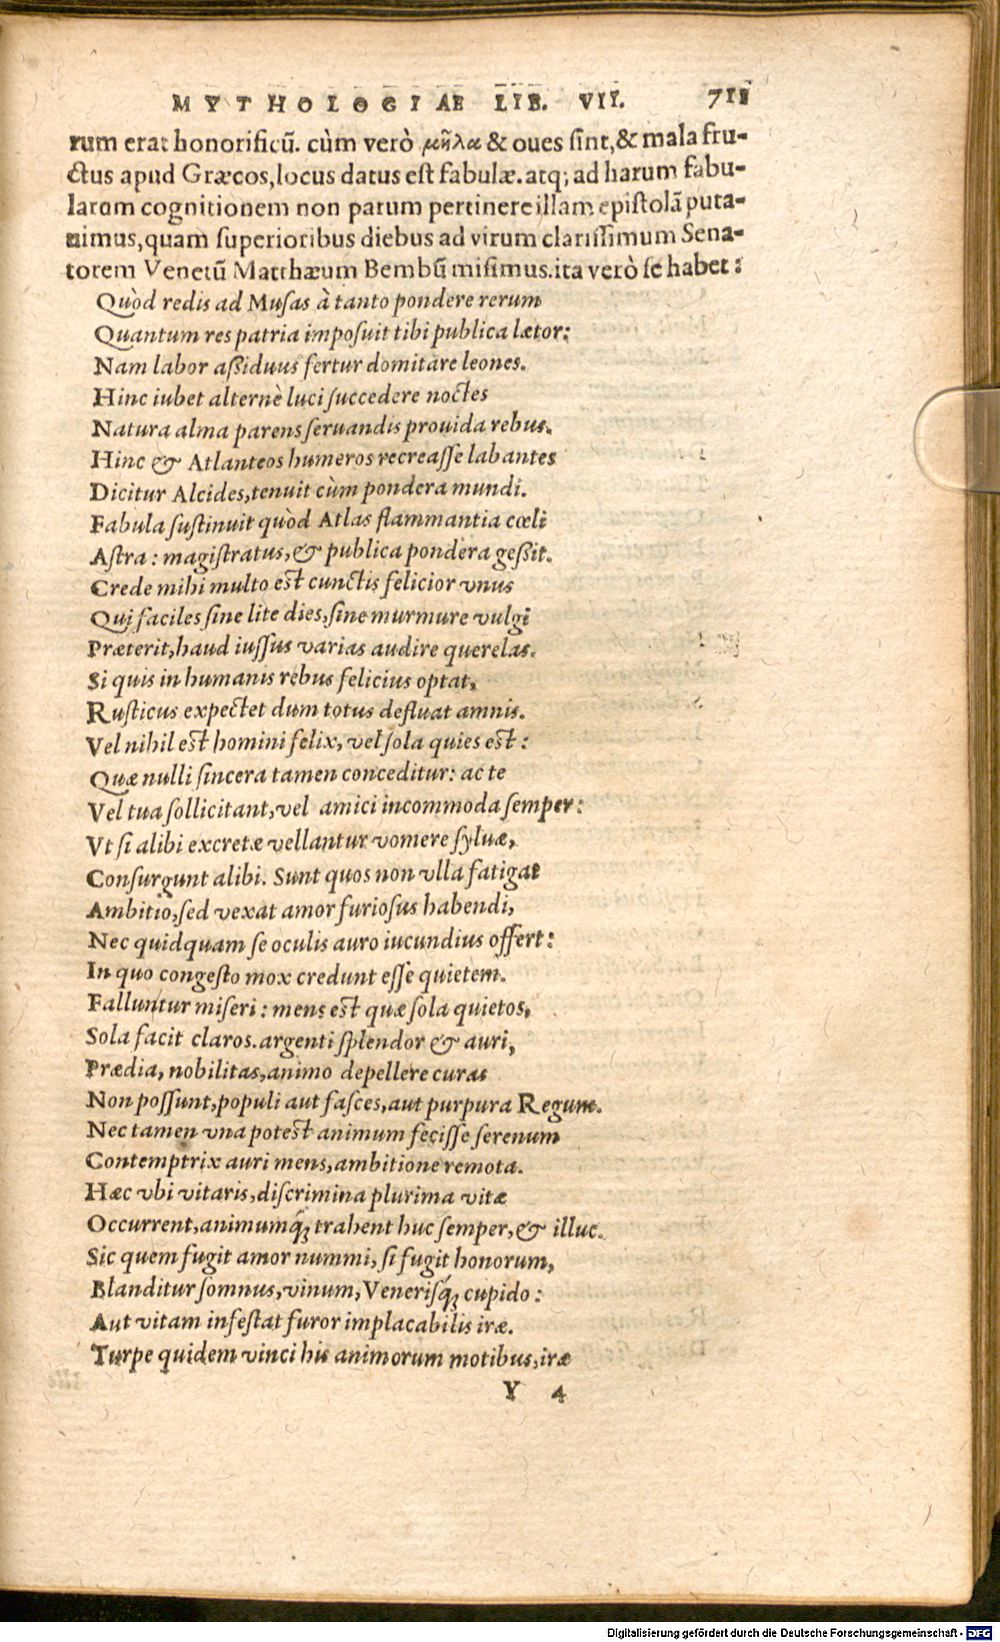 MYTHOLOGIAE LIB. VII. 711
rum erat honorificũ. cùm verò μῆλα & oues ſint, & mala fru-
ctus apud Græcos, locus datus eſt fabulæ. atq; ad harum fabu-
larum cognitionem non parum pertinere illam epiſtolã puta-
uimus, quam ſuperioribus diebus ad virum clariſſimum Sena-
torem Venetũ Matthæum Bembũ miſimus. ita verò ſe habet:
Quòd redis ad Muſas à tanto pondere rerum
Quantum res patria impoſuit tibi publica lætor:
Nam labor aſſiduus fertur domitare leones.
Hinc iubet alternè luci ſuccedere noctes
Natura alma parens ſeruandis prouida rebus.
Hinc & Atlanteos humeros recreaſſe labantes
Dicitur Alcides, tenuit cùm pondera mundi.
Fabula ſuſtinuit quòd Atlas flammantia cœli
Aſtra: magiſtratus, & publica pondera geſſit.
Crede mihi multo eſt cunctis felicior vnus
Qui faciles ſine lite dies, ſine murmure vulgi
Præterit, haud iuſſus varias audire querelas.
Si quis in humanis rebus felicius optat,
Ruſticus expectet dum totus defluat amnis.
Vel nihil eſt homini felix, vel ſola quies eſt:
Quæ nulli ſincera tamen conceditur: ac te
Vel tua ſollicitant, vel amici incommoda ſemper:
Vt ſi alibi excretæ vellantur vomere ſyluæ,
Conſurgunt alibi. Sunt quos non vlla fatigat
Ambitio, ſed vexat amor furioſus habendi,
Nec quidquam ſe oculis auro iucundius offert:
In quo congeſto mox credunt eſſe quietem.
Falluntur miſeri: mens eſt quæ ſola quietos,
Sola facit claros. argenti ſplendor & auri,
Prædia, nobilitas, animo depellere curas
Non poſſunt, populi aut faſces, aut purpura Regum.
Nec tamen vna poteſt animum feciſſe ſerenum
Contemptrix auri mens, ambitione remota.
Hæc vbi vitaris, diſcrimina plurima vitæ
Occurrent, animumq́; trahent huc ſemper, & illuc.
Sic quem fugit amor nummi, ſi fugit honorum,
Blanditur ſomnus, vinum, Veneriſq́; cupido:
Aut vitam infeſtat furor implacabilis iræ.
Turpe quidem vinci his animorum motibus, iræ
Y 4
Digitalisierung gefördert durch die Deutsche Forschungsgemeinschaft - DFG